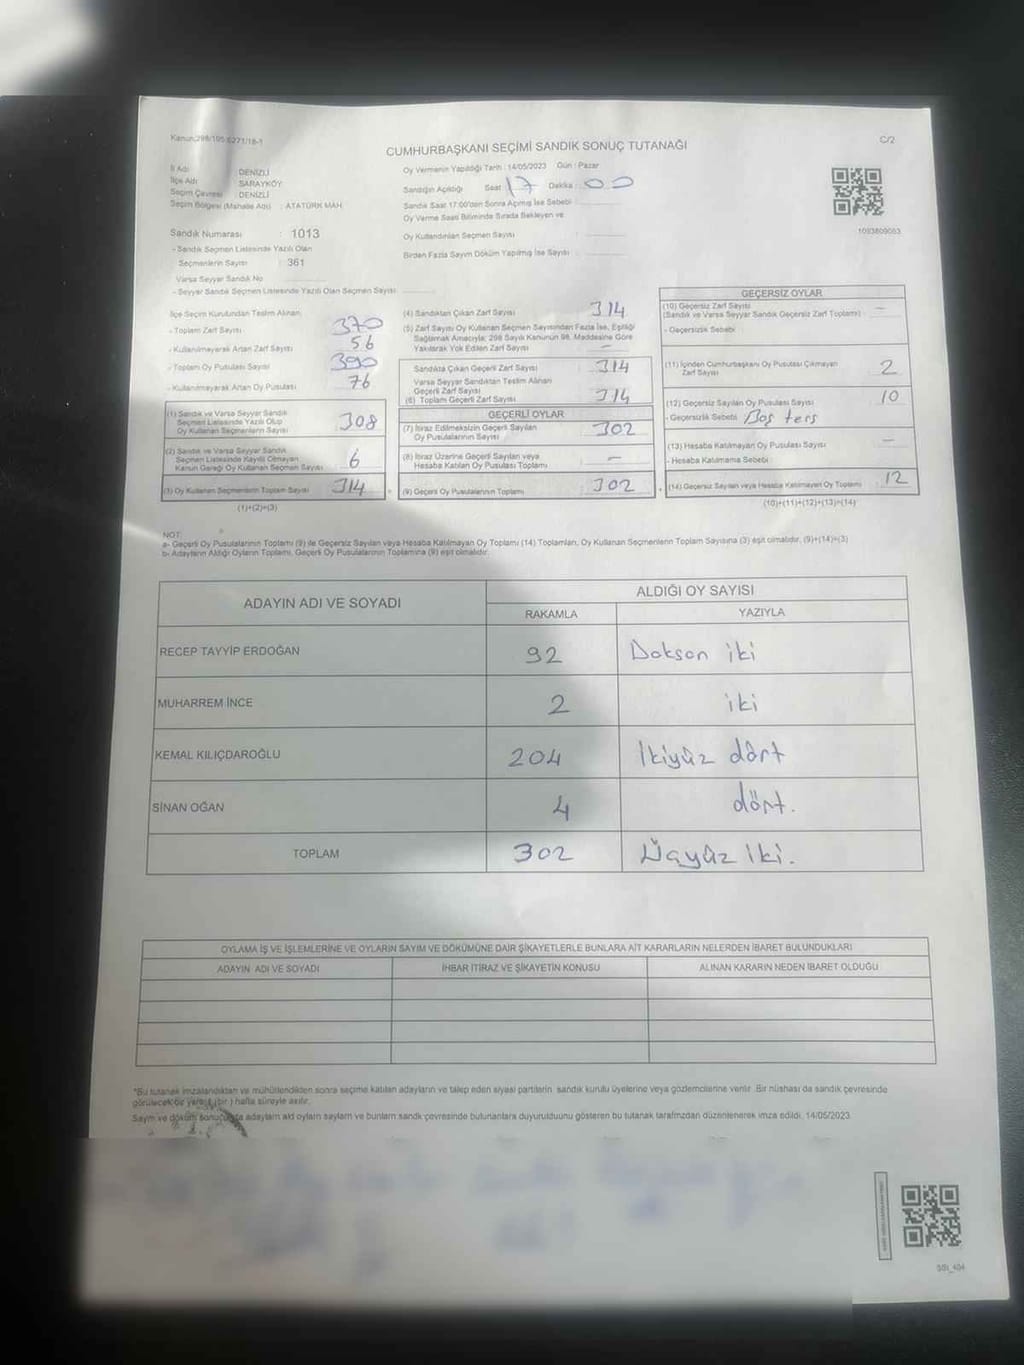 Kanun:298/105 6271/18-1
C/2
CUMHURBAŞKANI SEÇİMİ SANDIK SONUÇ TUTANAĞI
İl Adı : DENİZLİ
İlçe Adı : SARAYKÖY
Seçim Çevresi : DENİZLİ
Seçim Bölgesi (Mahalle Adı) : ATATÜRK MAH.
Sandık Numarası : 1013
- Sandık Seçmen Listesinde Yazılı Olan
Seçmenlerin Sayısı : 361
Varsa Seyyar Sandık No
- Seyyar Sandık Seçmen Listesinde Yazılı Olan Seçmen Sayısı
Oy Vermenin Yapıldığı Tarih : 14/05/2023 Gün : Pazar
Sandığın Açıldığı Saat : 17 Dakika : 00
Sandık Saat 17:00'den Sonra Açılmış İse Sebebi :
Oy Verme Saati Bitiminde Sırada Bekleyen ve
Oy Kullandırılan Seçmen Sayısı :
Birden Fazla Sayım Döküm Yapılmış İse Sayısı :
1093809083
İlçe Seçim Kurulundan Teslim Alınan;
- Toplam Zarf Sayısı 370
- Kullanılmayarak Artan Zarf Sayısı 56
- Toplam Oy Pusulası Sayısı 390
- Kullanılmayarak Artan Oy Pusulası 76
(1) Sandık ve Varsa Seyyar Sandık
Seçmen Listesinde Yazılı Olup
Oy Kullanan Seçmenlerin Sayısı 308
(2) Sandık ve Varsa Seyyar Sandık
Seçmen Listesinde Kayıtlı Olmayan
Kanun Gereği Oy Kullanan Seçmen Sayısı 6
(3) Oy Kullanan Seçmenlerin Toplam Sayısı 314
(1)+(2)=(3)
(4) Sandıktan Çıkan Zarf Sayısı 314
(5) Zarf Sayısı Oy Kullanan Seçmen Sayısından Fazla İse, Eşitliği
Sağlamak Amacıyla; 298 Sayılı Kanunun 98. Maddesine Göre
Yakılarak Yok Edilen Zarf Sayısı –
Sandıkta Çıkan Geçerli Zarf Sayısı 314
Varsa Seyyar Sandıktan Teslim Alınan
Geçerli Zarf Sayısı
(6) Toplam Geçerli Zarf Sayısı 314
GEÇERLİ OYLAR
(7) İtiraz Edilmeksizin Geçerli Sayılan
Oy Pusulalarının Sayısı 302
(8) İtiraz Üzerine Geçerli Sayılan veya
Hesaba Katılan Oy Pusulası Toplamı –
(9) Geçerli Oy Pusulalarının Toplamı 302
GEÇERSİZ OYLAR
(10) Geçersiz Zarf Sayısı
(Sandık ve Varsa Seyyar Sandık Geçersiz Zarf Toplamı) –
- Geçersizlik Sebebi
(11) İçinden Cumhurbaşkanı Oy Pusulası Çıkmayan
Zarf Sayısı 2
(12) Geçersiz Sayılan Oy Pusulası Sayısı 10
- Geçersizlik Sebebi Boş ters
(13) Hesaba Katılmayan Oy Pusulası Sayısı –
- Hesaba Katılmama Sebebi
(14) Geçersiz Sayılan veya Hesaba Katılmayan Oy Toplamı 12
(10)+(11)+(12)+(13)=(14)
NOT:
a- Geçerli Oy Pusulalarının Toplamı (9) ile Geçersiz Sayılan veya Hesaba Katılmayan Oy Toplamı (14) Toplamları, Oy Kullanan Seçmenlerin Toplam Sayısına (3) eşit olmalıdır. (9)+(14)=(3)
b- Adayların Aldığı Oyların Toplamı, Geçerli Oy Pusulalarının Toplamına (9) eşit olmalıdır.
ADAYIN ADI VE SOYADI
ALDIĞI OY SAYISI
RAKAMLA YAZIYLA
RECEP TAYYİP ERDOĞAN 92 Doksan iki
MUHARREM İNCE 2 iki
KEMAL KILIÇDAROĞLU 204 İkiyüz dört
SİNAN OĞAN 4 dört.
TOPLAM 302 Üçyüz iki.
OYLAMA İŞ VE İŞLEMLERİNE VE OYLARIN SAYIM VE DÖKÜMÜNE DAİR ŞİKAYETLERLE BUNLARA AİT KARARLARIN NELERDEN İBARET BULUNDUKLARI
ADAYIN ADI VE SOYADI İHBAR İTİRAZ VE ŞİKAYETİN KONUSU ALINAN KARARIN NEDEN İBARET OLDUĞU
*Bu tutanak imzalandıktan ve mühürlendikten sonra seçime katılan adayların ve talep eden siyasi partilerin sandık kurulu üyelerine veya gözlemcilerine verilir. Bir nüshası da sandık çevresinde
görülecek bir yere 1 (bir ) hafta süreyle asılır.
Sayım ve döküm sonucunda adayların aldı oyların sayların ve bunların sandık çevresinde bulunanlara duyurulduunu gösteren bu tutanak tarafımzdan düzenlenerek imza edildi. 14/05/2023
SSt_404